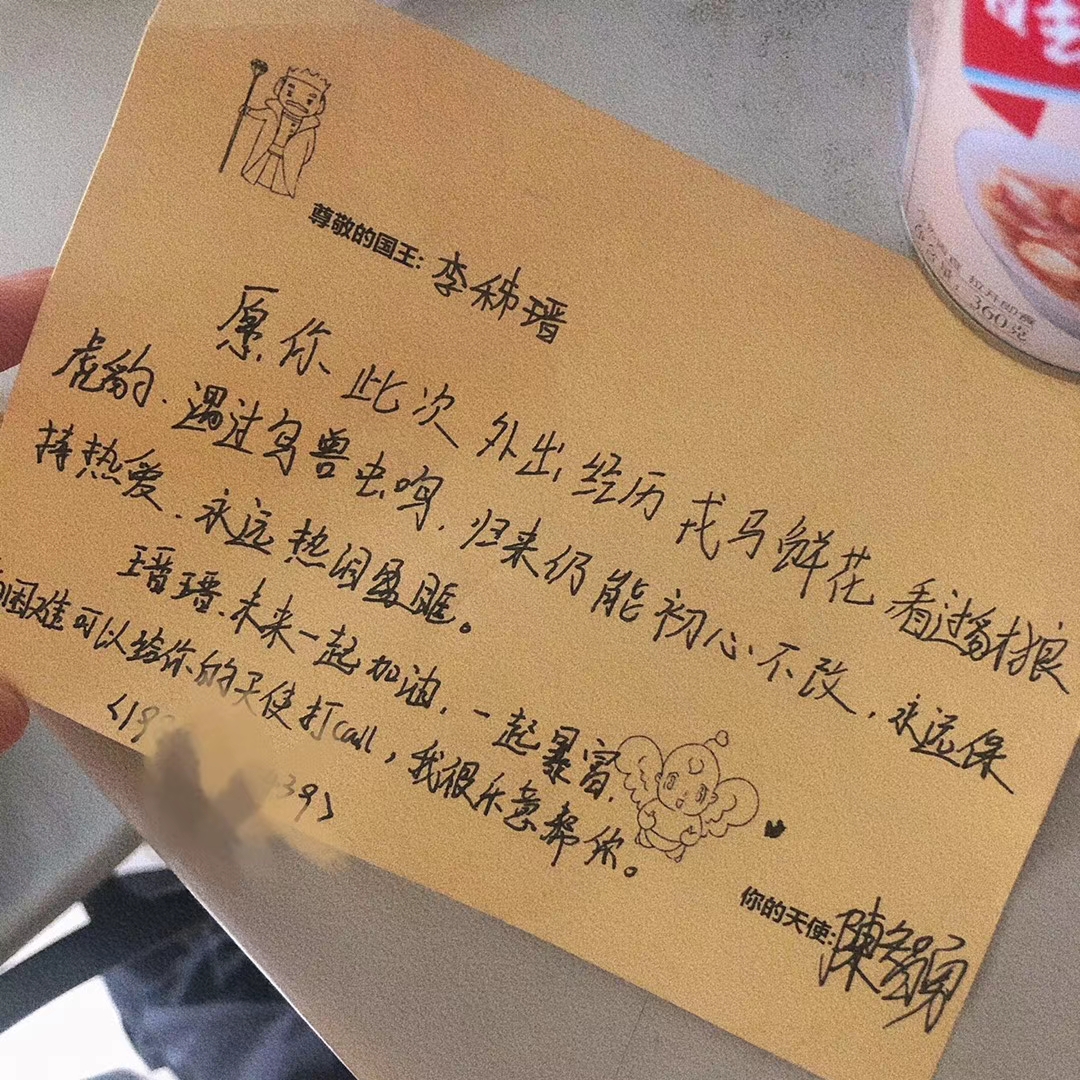 尊敬的国王: 李秭瑨
愿你、此次外出,经历戎马鲜花 看过豺狼
虎豹、遇过鸟兽虫鸣,归来仍能初心不改,永远保
持热爱、永远热泪盈眶。
瑨瑨、未来一起加油,一起暴富,
困难可以给你的天使打call,我很乐意帮你。
你的天使: 陳
360克